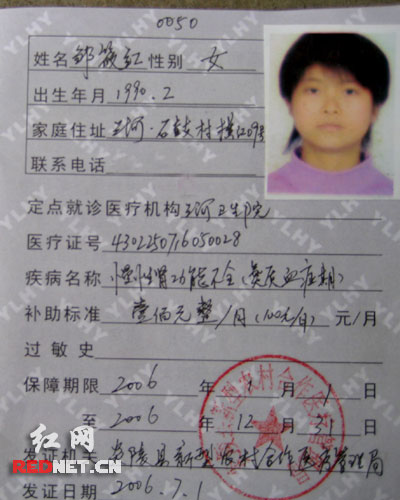 0050
姓名 邹筱红 性别 女
出生年月 1990.2
家庭住址 三河·石鼓村横江09号
联系电话
定点就诊医疗机构 三河卫生院
医疗证号 430225071605 0028
疾病名称 慢性肾功能不全(氮质血症期)
补助标准 壹佰元整/月(100元/月) 元/月
过敏史
保障期限 2006 年 7 月 1 日
至 2006 年 12 月 31 日
发证机关 炎陵县新型农村合作医疗管理局
发证日期 2006.7.1
红网
REDNET.CN
YLHY